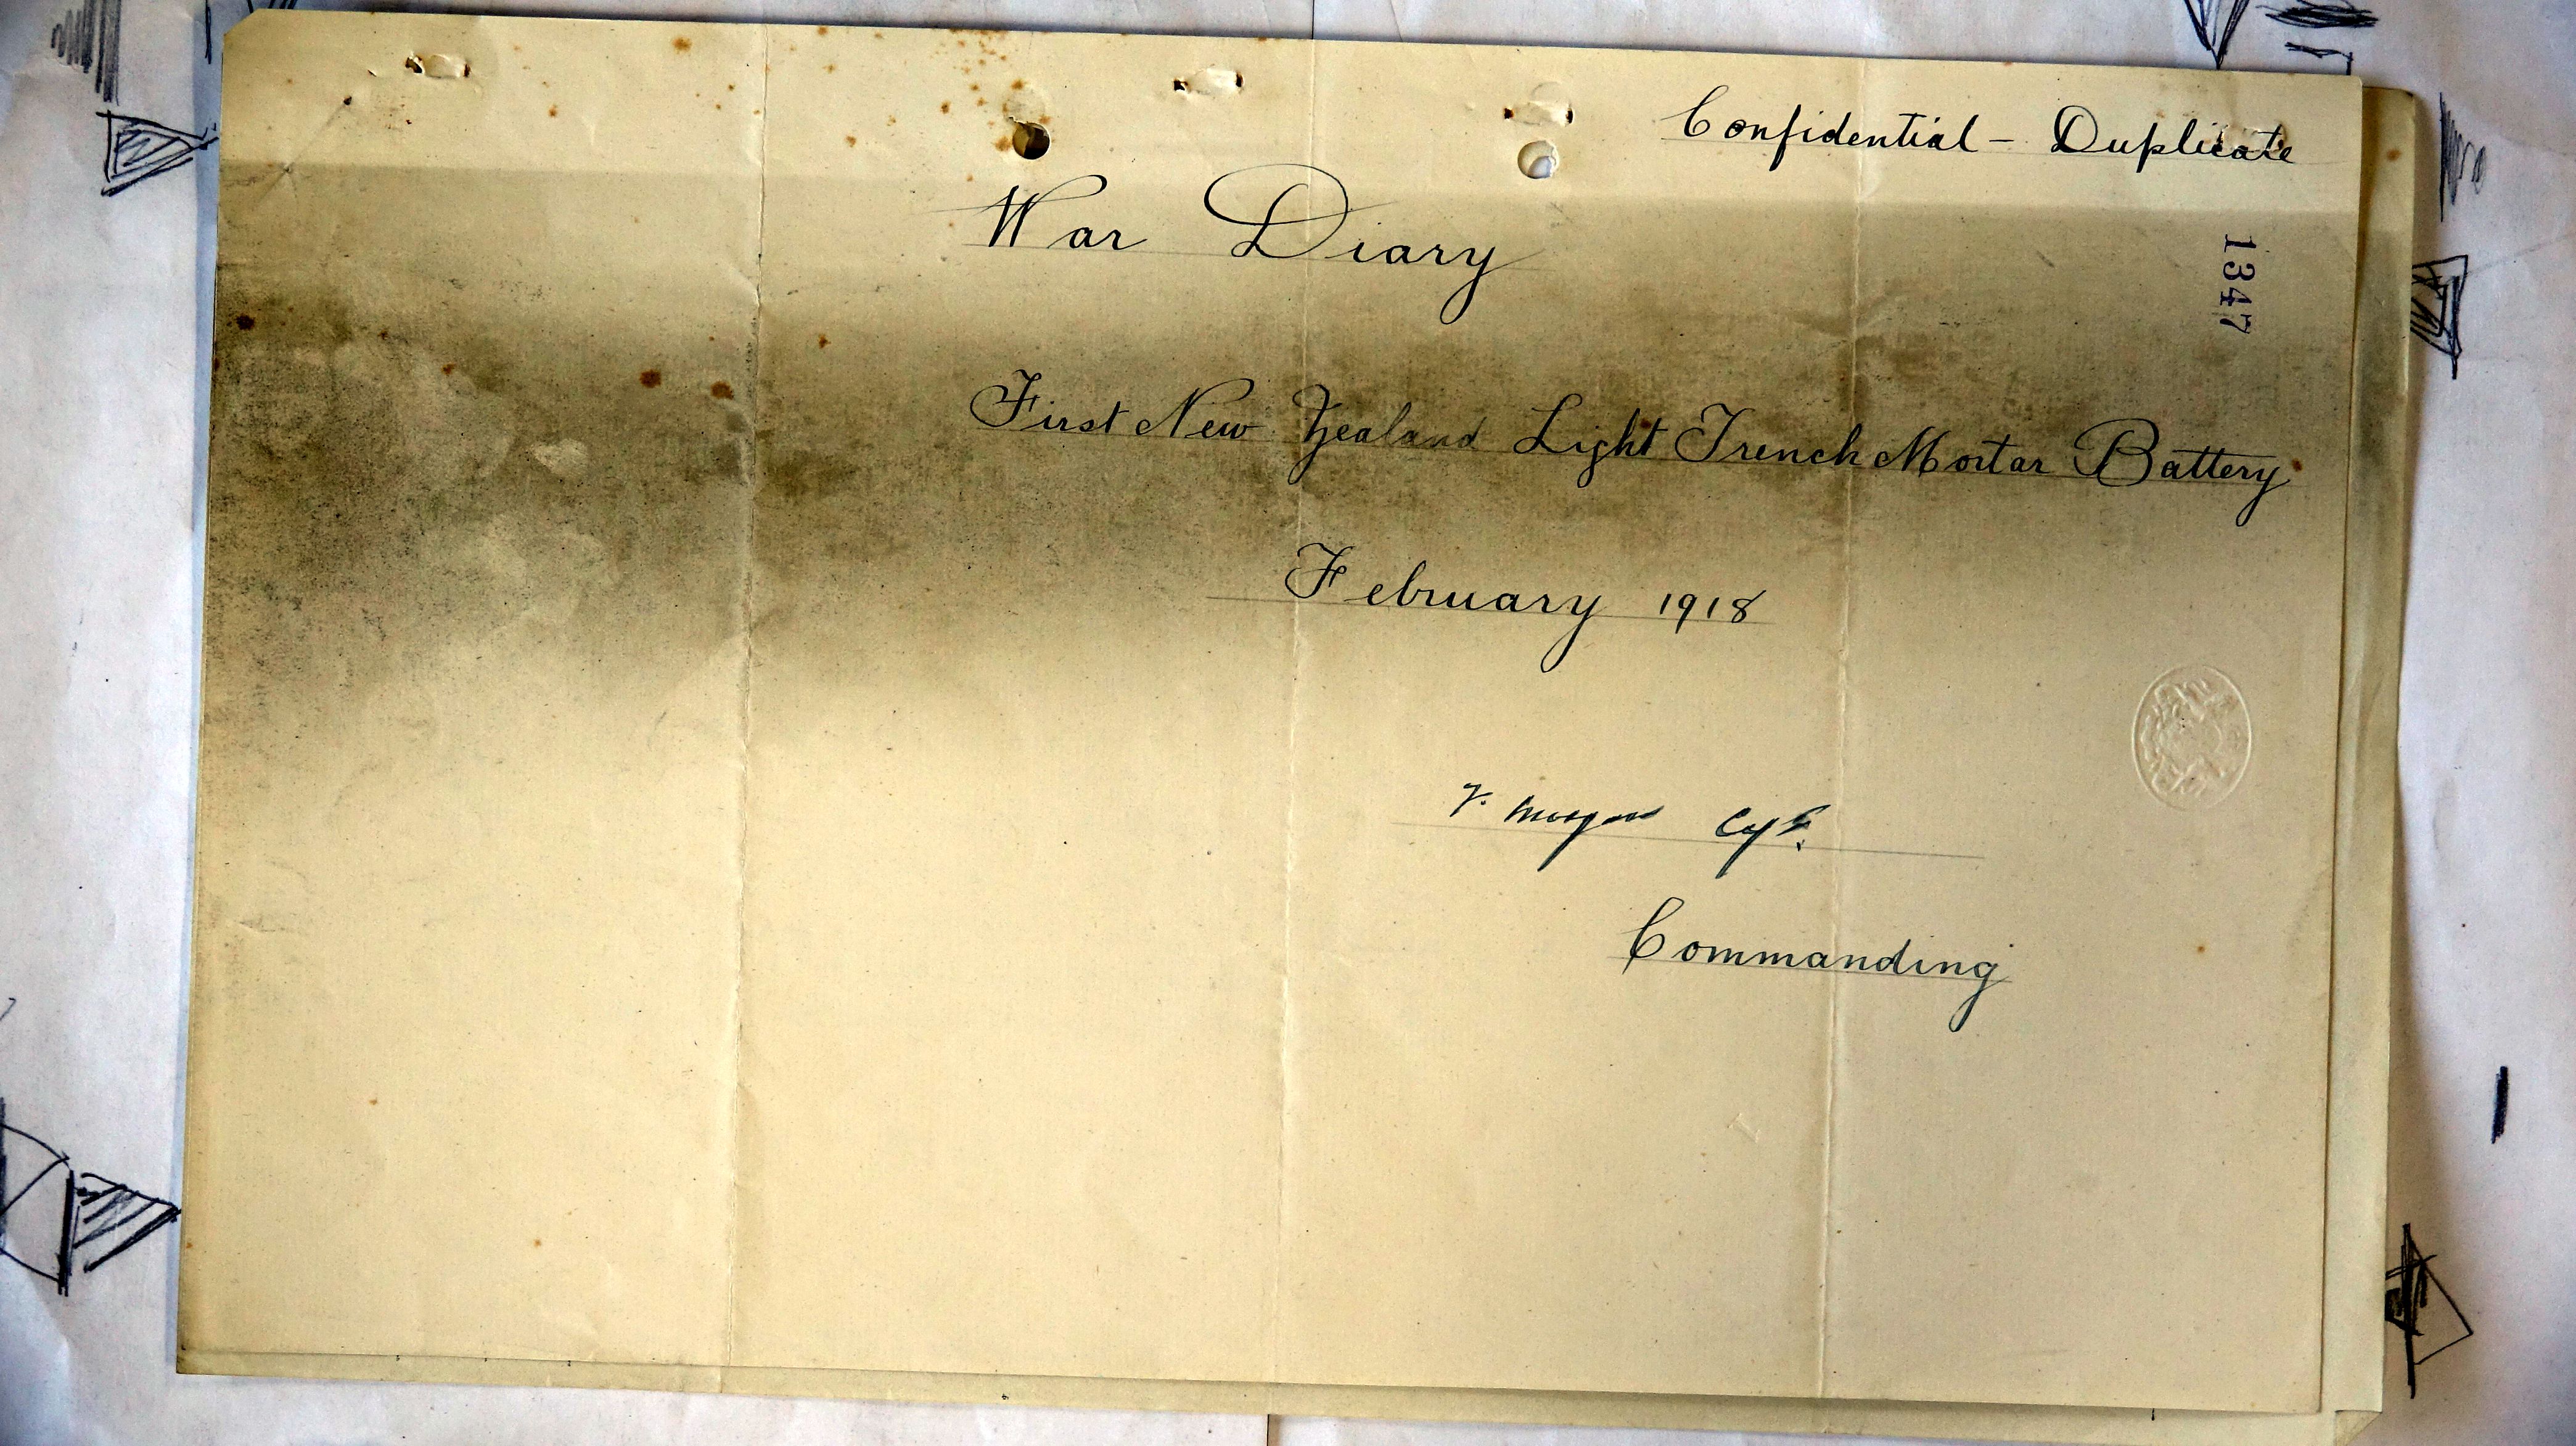 Confidential - Duplicate
War Diary
1347
First New Zealand Light Trench Mortar Battery
February 1918
Morgan Capt.
Commanding